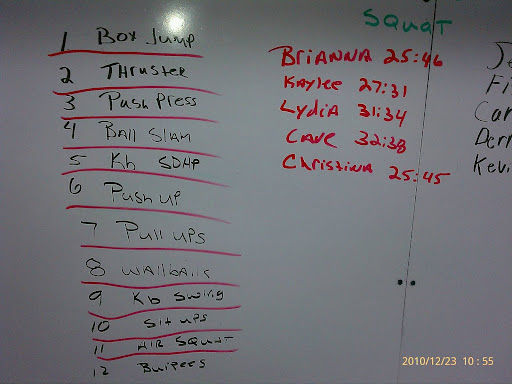 1 Box Jump
2 Thruster
3 Push Press
4 Ball Slam
5 Kb SDHP
6 Push up
7 Pull ups
8 wallballs
9 Kb Swing
10 Sit ups
11 AIR SQUAT
12 Burpees
SQUAT
BRIANNA 25:46
KAYlee 27:31
LydiA 31:34
CAVE 32:38
ChristinA 25:45
Fi
Car
Derr
Kevi
2010/12/23 10:55